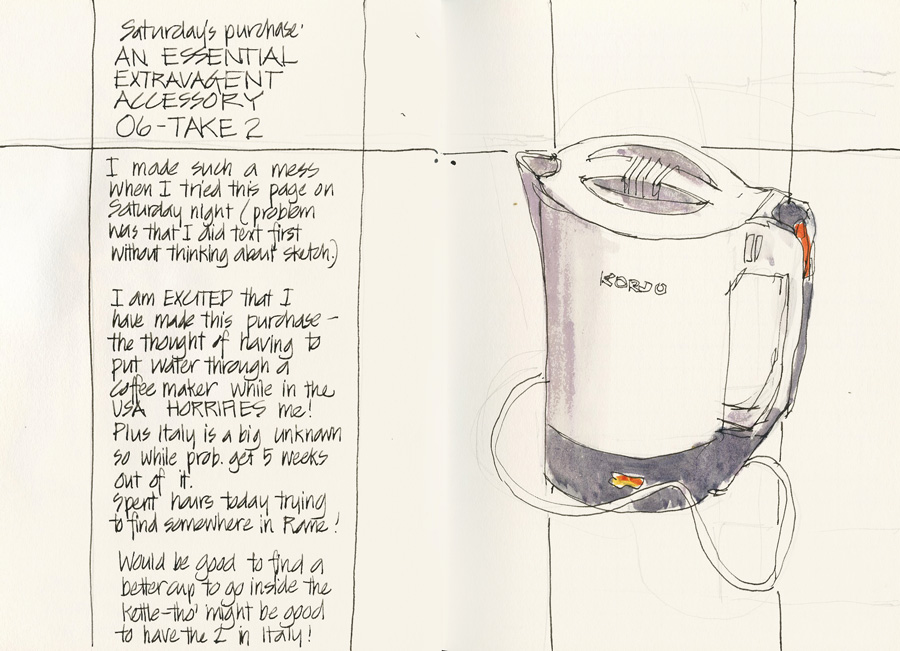 Saturday's purchase:
AN ESSENTIAL
EXTRAVAGENT
ACCESSORY
06-TAKE 2
I made such a mess
when I tried this page on
Saturday night (problem
was that I did text first
without thinking about sketch.)
I am EXCITED that I
have made this purchase -
the thought of having to
put water through a
coffee maker while in the
USA HORRIFIES me!
Plus Italy is a big unknown
so while prob. get 5 weeks
out of it.
Spent hours today trying
to find somewhere in Rome!
Would be good to find a
better cup to go inside the
kettle-tho' might be good
to have the 2 in Italy!
KORJO